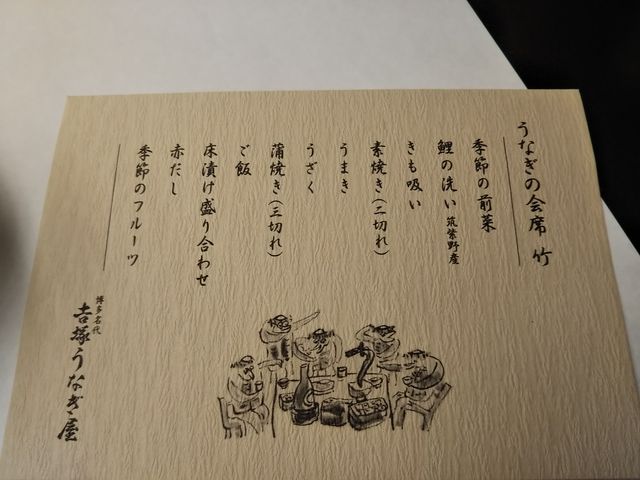 うなぎの会席 竹
季節の前菜
鯉の洗い 筑紫野産
きも吸い
素焼き(二切れ)
うまき
うざく
蒲焼き(三切れ)
ご飯
床漬け盛り合わせ
赤だし
季節のフルーツ
博多名代
吉塚うなぎ屋